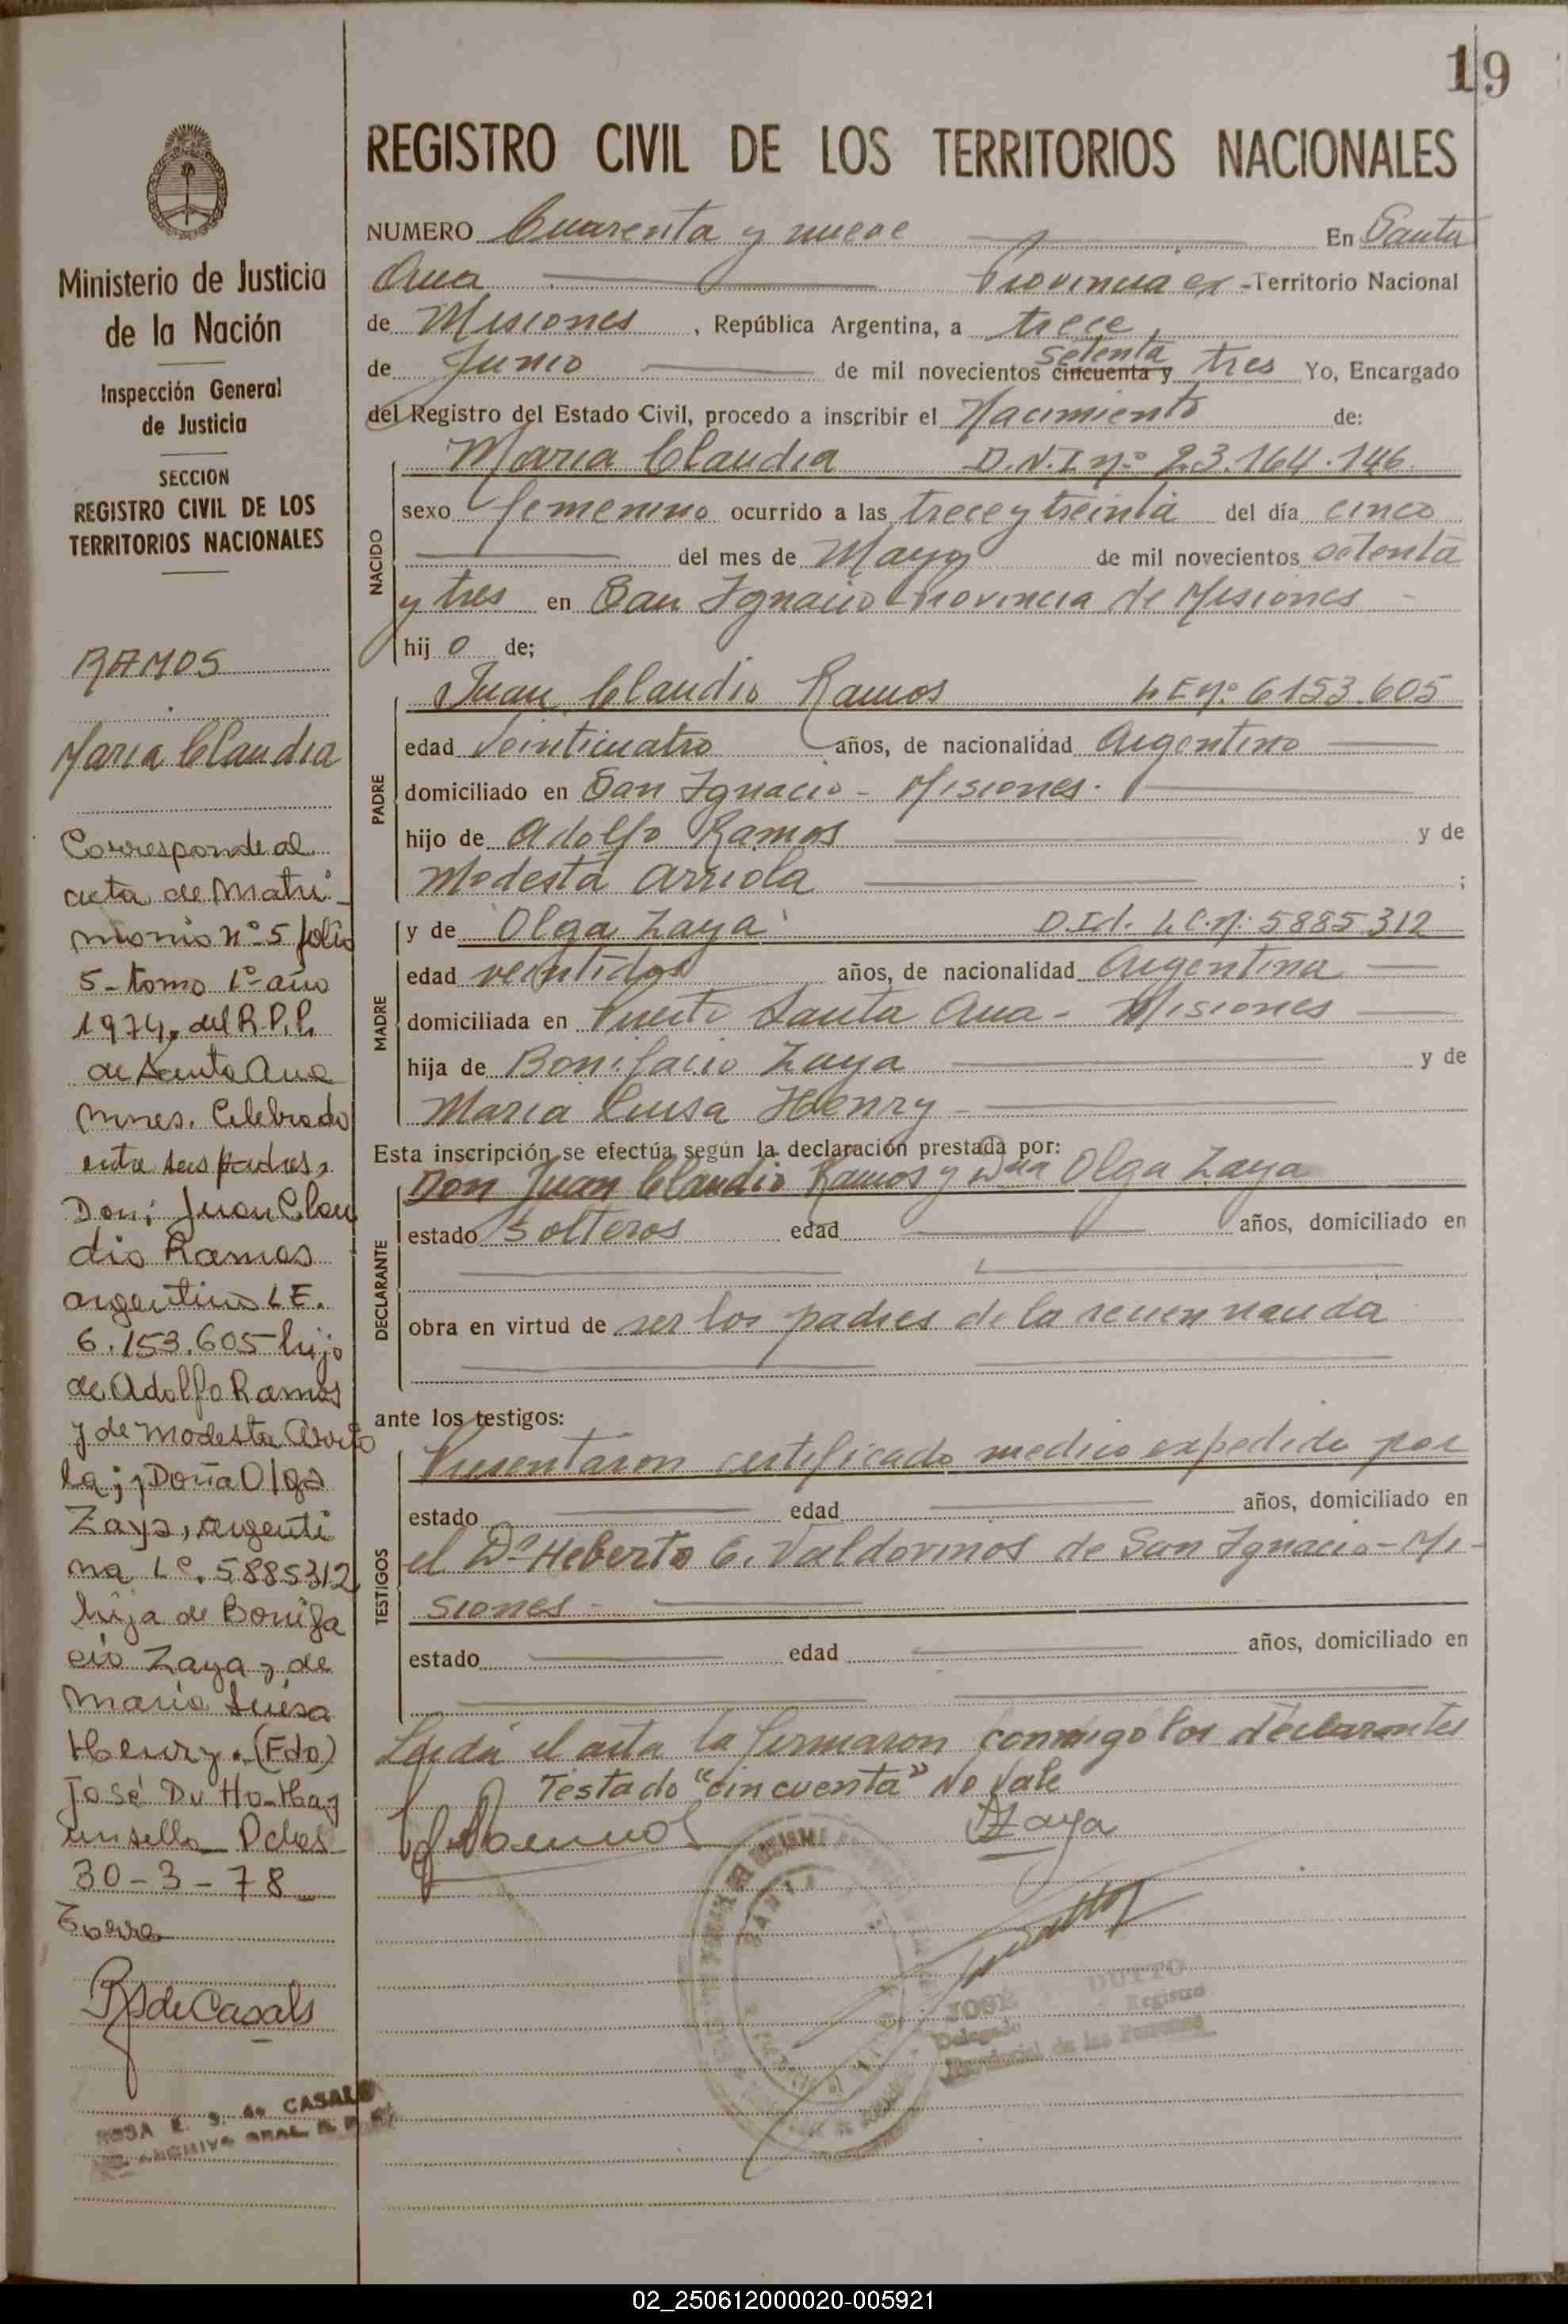 19
REGISTRO CIVIL DE LOS TERRITORIOS NACIONALES
NUMERO Cuarenta y nueve En Santa
Ana Provincia ex -Territorio Nacional
de Misiones , República Argentina, a trece
de Junio de mil novecientos cincuenta y setenta tres Yo, Encargado
del Registro del Estado Civil, procedo a inscribir el Nacimiento de:
NACIDO
Maria Claudia D.N.I nº 23.164.146
sexo femenino ocurrido a las trece y treinta del día cinco
del mes de Mayo de mil novecientos setenta
y tres en San Ignacio Provincia de Misiones
hij o de;
PADRE
Juan Claudio Ramos L E nº 6153.605
edad Veinticuatro años, de nacionalidad Argentino
domiciliado en San Ignacio - Misiones.
hijo de Adolfo Ramos y de
Modesta Arriola ;
MADRE
y de Olga Zaya D.Id. L C. nº 5885312
edad veintidos años, de nacionalidad Argentina
domiciliada en Puerto Santa Ana - Misiones
hija de Bonifacio Zaya y de
Maria Luisa Henry
Esta inscripción se efectúa según la declaración prestada por:
DECLARANTE
Don Juan Claudio Ramos y Dña Olga Zaya
estado Solteros edad años, domiciliado en
obra en virtud de ser los padres de la recien nacida
ante los testigos:
TESTIGOS
Presentaron certificado medico expedido por
estado edad años, domiciliado en
el Dr Heberto E. Valdovinos de San Ignacio - Mi-
siones -
estado edad años, domiciliado en
Leida el acta la firmaron conmigo los declarantes
Testado "cincuenta" No Vale
Zaya
JOSE DUTTO
Delegado Registro
Provincial de las Personas
Ministerio de Justicia
de la Nación
Inspección General
de Justicia
SECCION
REGISTRO CIVIL DE LOS
TERRITORIOS NACIONALES
RAMOS
Maria Claudia
Corresponde al
acta de Matri-
monio nº 5 folio
5 - tomo 1º año
1974, del R.P.P.
de Santa Ana
Mnes. Celebrado
entre sus padres,
Don: Juan Clau
dio Ramos
argentino L E.
6.153.605 hijo
de Adolfo Ramos
y de Modesta Arrio
la; y Doña Olga
Zaya, argenti
na L C. 5885312
hija de Bonifa
cio Zaya y de
Maria Luisa
Henry. (Fdo)
José Du
un sello Pdas
30-3-78
R S de Casals
ROSA E. S. de CASALS
ARCHIVO GRAL. R. P. P.
02_250612000020-005921